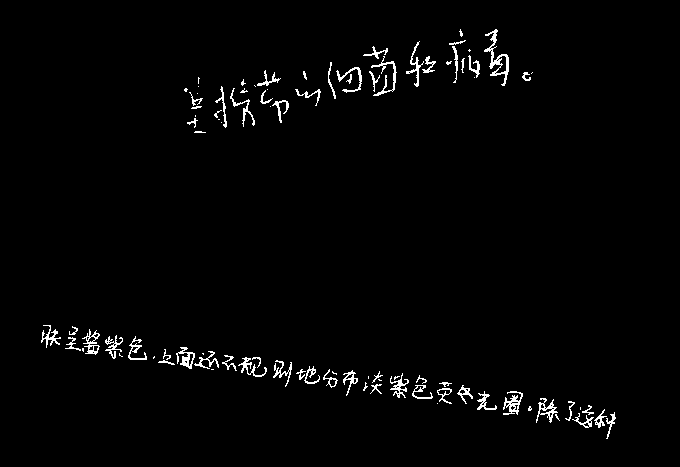 是携带的细菌和病毒。
肤呈酱紫色，上面还不规则地分布淡紫色荧光圈。除了这种